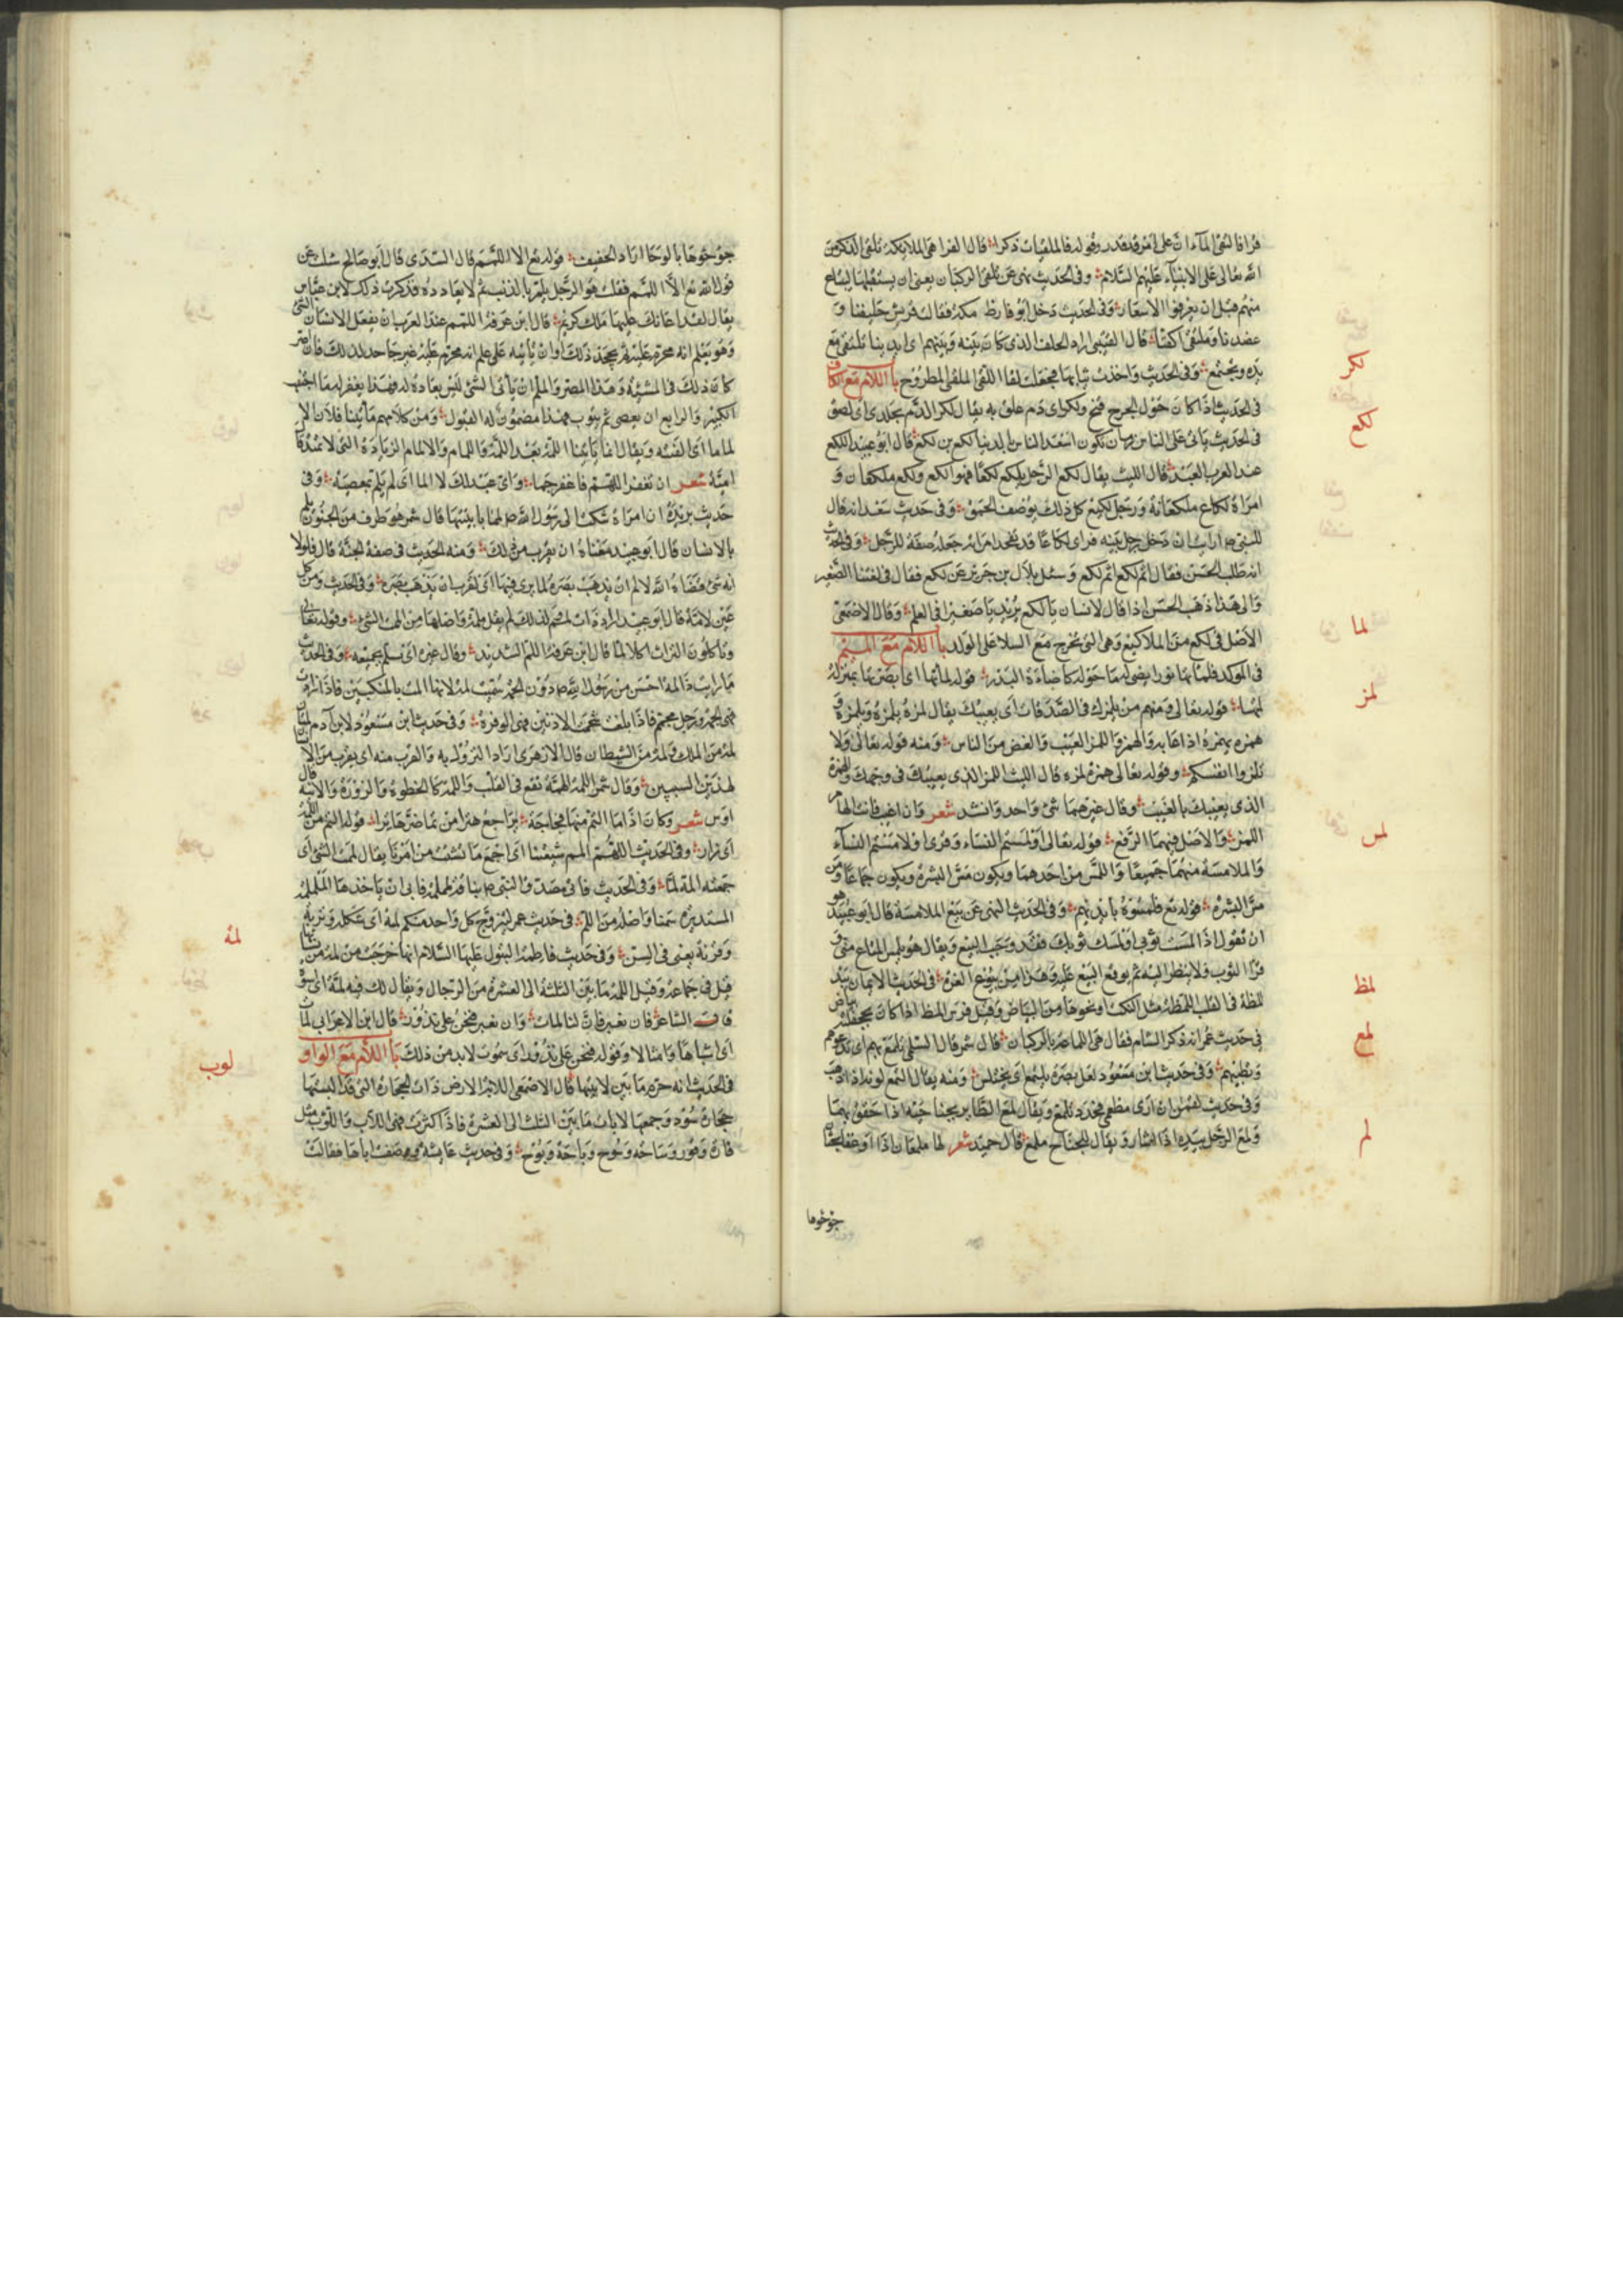 قرا فالتقى الماء ان على امر قد قدر وقوله فالملقيات ذكرا قال الفرا هى الملائكة تلقى الذكر من
الله تعالى على الانبياء عليهم السلام وفى الحديث نهى عن تلقى الركبان يعنى ان يستقبلها ليبتاع
منهم قبل ان يعرفوا الاسعار وفى الحديث دخل ابو قارظ مكة فقالت قريش حليفنا و
عضدنا وملتقى اكفنا قال القتيبى اراد الحلف الذى كان بينه وبينهم اى ايدينا تلتقى مع
يده ويجتمع وفى الحديث واخذت ثيابها فجعلت لقا اللقى الملقى المطروح باب اللام مع الكاف
لكد
فى الحديث اذا كان حول الجرح قيح ولكد اى دم علق به يقال لكد الدم بجلدى اى لصق
لكع
فى الحديث يأتى على الناس زمان يكون اسعد الناس بالدنيا لكع بن لكع قال ابو عبيد اللكع
عند العرب العبد قال الليث يقال لكع الرجل يلكع لكعا فهو الكع ولكع ملكعان و
امراة لكاع ملكعانة ورجل لكيع كل ذلك يوصف الحمق وفى حديث سعد انه قال
للنبى ص ارايت ان دخل رجل بيته فراى لكاعا قد تفخذ امراته جعله صفة للرجل وفى الحديث
انه طلب الحسن فقال اثم لكع اثم لكع وسئل بلال بن جرير عن لكع فقال فى لغتنا الصغير
والى هذا ذهب الحسن اذا قال لانسان يا لكع يريد يا صغيرا فى العلم وقال الاصمعى
الاصل فى لكع من الملاكيع وهى التى تخرج مع السلا على الولد باب اللام مع الميم
لما
فى المولد فلمأتها نورا يضىء له ما حوله كاضاءة البدر قوله لمأتها اى ابصرتها بمنزلة
لمز
لمحتها قوله تعالى ومنهم من يلمزك فى الصدقات اى يعيبك يقال لمزه يلمزه ويلمزه و
همزه يهمزه اذا عابه والهمز واللمز العيب والغض من الناس ومنه قوله تعالى ولا
تلمزوا انفسكم وقوله تعالى همزة لمزة قال الليث اللمز الذى يعيبك فى وجهك والهمزة
الذى يعيبك بالغيب وقال غيرهما شىء واحد وانشد شعر وان اغيب فانت الهامز
لمس
اللمزه والاصل فيهما الرفع قوله تعالى او لمستم النساء وقرى او لامستم النساء
والملامسة منهما جميعا واللمس من احدهما ويكون مس البشرة ويكون جماعا ومن
مس البشرة قوله تع فلمسوه بايديهم وفى الحديث النهى عن بيع الملامسة قال ابو عبيد هو
ان تقول اذا لمست ثوبى او لمست ثوبك فقد وجب البيع ويقال هو يلمس المتاع من
لمظ
ورا الثوب ولا ينظر اليه ثم يوقع البيع عليه وهذا من بيوع الغرر فى الحديث الايمان يبدا
لمظة فى القلب اللمظة مثل النكتة او نحوها من البياض وقيل فرس المظ اذا كان بجحفلته بياض
لمع
فى حديث عمر انه ذكر الشام فقال هى اللماعة بالركبان قال شمر قال السلمى تلمع بهم اى تدعوهم
وتطبيهم وفى حديث ابن مسعود لعل بصره يلتمع اى يختلس ومنه يقال التمع لونه اذا ذهب
وفى حديث لقمن ان ارى مطمعى فحدو تلمع ويقال لمع الطاير بجناحيه اذا خفق بهما
لم
ولمع الرجل بيده اذا اشار ويقال للجناح ملمع قال حميد شعر لها ملمعان اذا اوغفا يحثان
جؤجؤها
جؤجؤها بالوحا اراد الحفيف قوله تع الا اللمم قال السدى قال ابو صالح سئلت عن
قول الله تع الا اللمم فقلت هو الرجل يلم بالذنب ثم لا يعاوده فذكرت ذلك لابن عباس
يقال لقد اعانك عليها ملك كريم قال ابن عرفة اللمم عند العرب ان يفعل الانسان الشىء
الكبير والرابع ان يعصى ثم يتوب فهذا مضمون له القبول ومن كلامهم ما ياتينا فلان الا
لماما اى الفينة
امية شعر ان تغفر اللهم فاغفر جما واى عبد لك لا الما اى لم يلم بمعصية وفى
حديث بريدة ان امراة شكت الى رسول الله ص لمما بابنتها قال شمر هو طرف من الجنون يلم
بالانسان قال ابو عبيد معناه ان يقرب من ذلك ومنه الحديث فى صفة الجنة قال فلولا
انه شىء قضاه الله لالم ان يذهب بصره لما يرى فيها اى لقرب ان يذهب بصره وفى الحديث ومن كل
عين لامة قال ابو عبيد اراد ذات لمم لذلك لم يقل ملمة واصلها من الممت الشىء وقوله تعالى
وتاكلون التراث اكلا لما قال ابن عرفة اللم الشديد وقال غيره اى تسلم بجميعه وفى الحديث
ما رايت ذا لمة احسن من رسول الله ص دون الجمة سميت لمة لانها المت بالمنكبين فاذا زادت
فهى الجمة ورجل مجمم فاذا بلغت شحمة الاذنين فهى الوفرة وفى حديث ابن مسعود لابن آدم لمتان
لمة من الملك ولمة من الشيطان قال الازهرى اراد النزول به والقرب منه اى يقرب من الانسان
لهذين السببين وقال شمر اللمة الهمة تقع فى القلب واللمة كالخطرة والزورة والاتية قال
اوس شعر وكان اذا ما التم منها بحاجة يراجع هترا من تماضر هاترا قوله التم من اللمة
اى زار وفى الحديث اللهم المم شعثنا اى اجمع ما تشتت من امرنا يقال لممت الشىء اى
جمعته المه لما وفى الحديث فاتى مصدق النبى ص بناقة ململمة فابى ان ياخذها الململمة
لمة
المستديرة سمنا واصله من اللم فى حديث عمر ليتزوج كل واحد منكم لمته اى شكله وتربه
وقرنه يعنى فى السن وفى حديث فاطمة البتول عليها السلام انها خرجت من لمة من نسائها
قيل فى جماعة وقيل اللمة ما بين الثلثة الى العشرة من الرجال ويقال لك فيه لمة اى اسوة
قال الشاعر فان نعبر فان لنا لمات وان نغبر فنحن على نذور قال ابن الاعرابى لمات
لوب
اى اشباها وامثالا وقوله فنحن على نذور اى سنموت لا بد من ذلك باب اللام مع الواو
فى الحديث انه حرم ما بين لابتيها قال الاصمعى اللابة الارض ذات الحجارة التى قد البستها
حجارة سود وجمعها لابات ما بين الثلث الى العشر فاذا كثرت فهى اللاب واللوب مثل
قارة وقور وساحة وسوح وباحة وبوح وفى حديث عايشة وصفت اباها فقالت